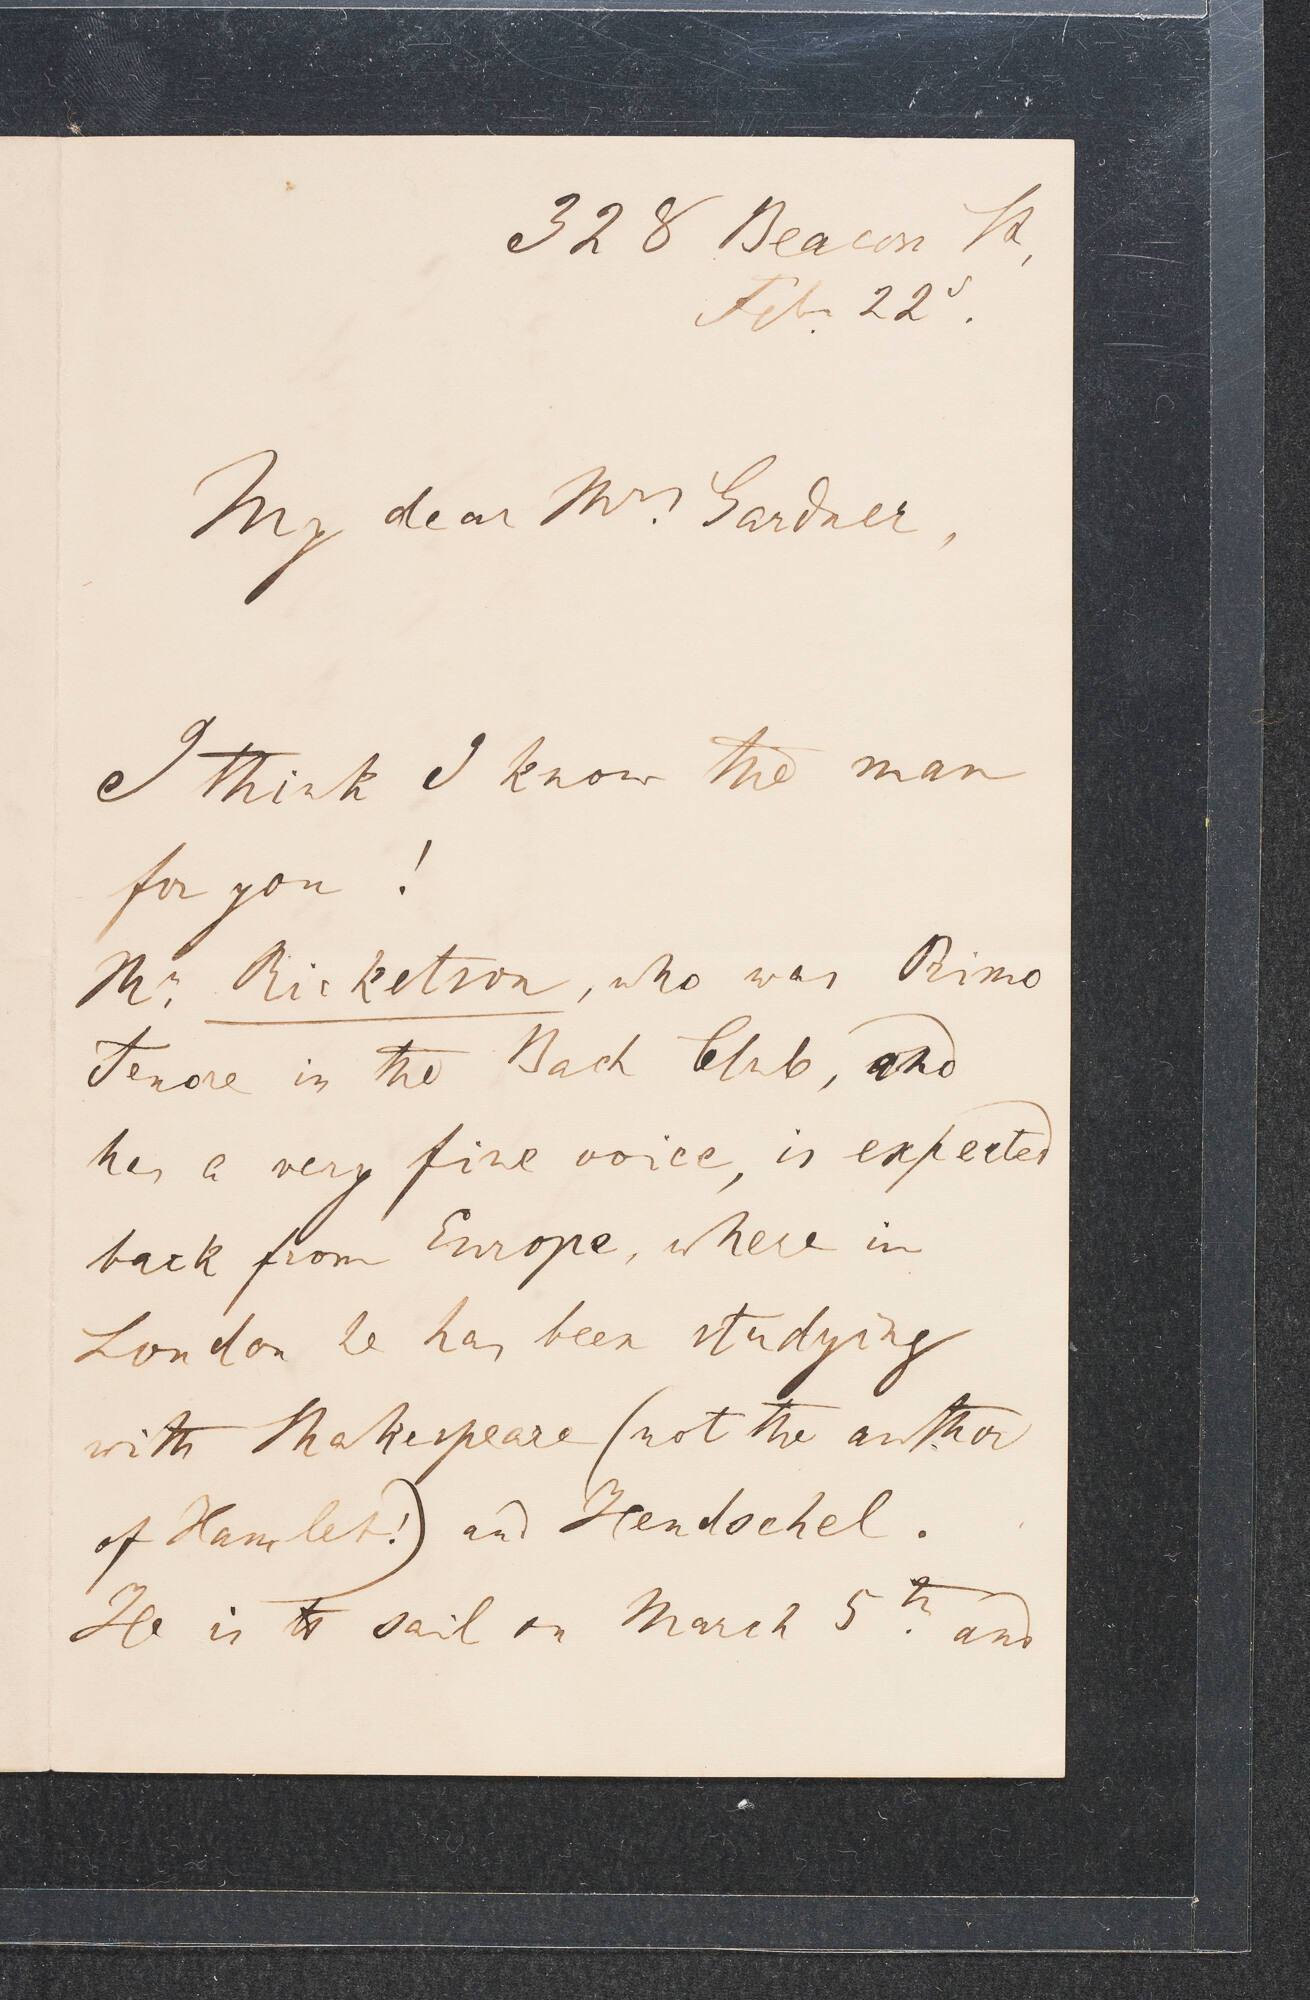 328 Beacon St,
Feb. 22d.
My dear Mrs. Gardner,
I think I know the man
for you!
Mr. Ricketson, who was Primo
Tenore in the Bach Club, and
has a very fine voice, is expected
back from Europe, where in
London he has been studying
with Shakespeare (not the author
of Hamlet!) and Hendschel.
He is to sail on March 5th. and